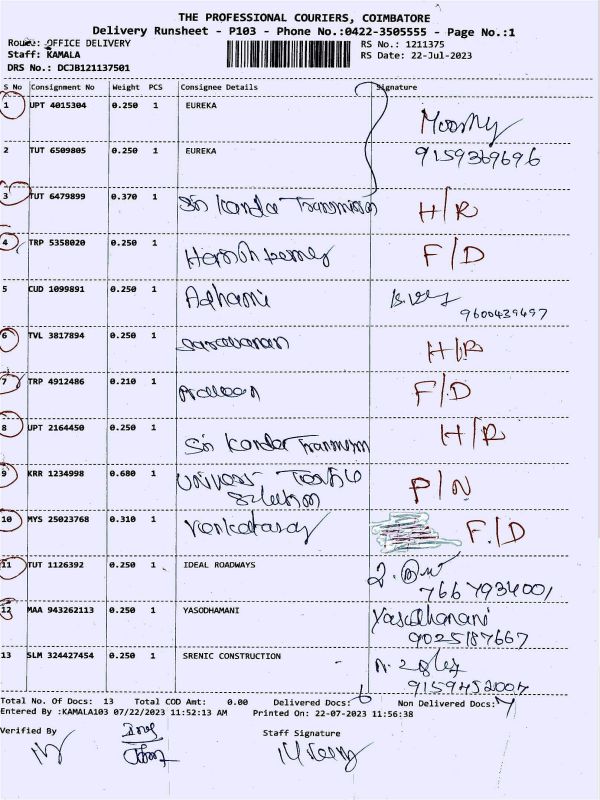 THE PROFESSIONAL COURIERS, COIMBATORE
Delivery Runsheet - P103 - Phone No.:0422-3505555 - Page No.:1
Route: OFFICE DELIVERY RS No.: 1211375
Staff: KAMALA RS Date: 22-Jul-2023
DRS No.: DCJB121137501
S No Consignment No Weight PCS Consignee Details Signature
1 UPT 4015304 0.250 1 EUREKA
2 TUT 6509805 0.250 1 EUREKA 9159369696
3 TUT 6479899 0.370 1 Sri Kanda Transmission H/R
4 TRP 5358020 0.250 1 F/D
5 CUD 1099891 0.250 1 9600439497
6 TVL 3817894 0.250 1 Saravanan H/R
7 TRP 4912486 0.210 1 Praveen F/D
8 UPT 2164450 0.250 1 Sri Kanda H/R
9 KRR 1234998 0.680 1 P/N
10 MYS 25023768 0.310 1 F/D
11 TUT 1126392 0.250 1 IDEAL ROADWAYS
7667934001
12 MAA 943262113 0.250 1 YASODHAMANI Yasodhamani
9025187667
13 SLM 324427454 0.250 1 SRENIC CONSTRUCTION
9159452007
Total No. Of Docs: 13 Total COD Amt: 0.00 Delivered Docs: 6 Non Delivered Docs: 7
Entered By :KAMALA103 07/22/2023 11:52:13 AM Printed On: 22-07-2023 11:56:38
Verified By Staff Signature